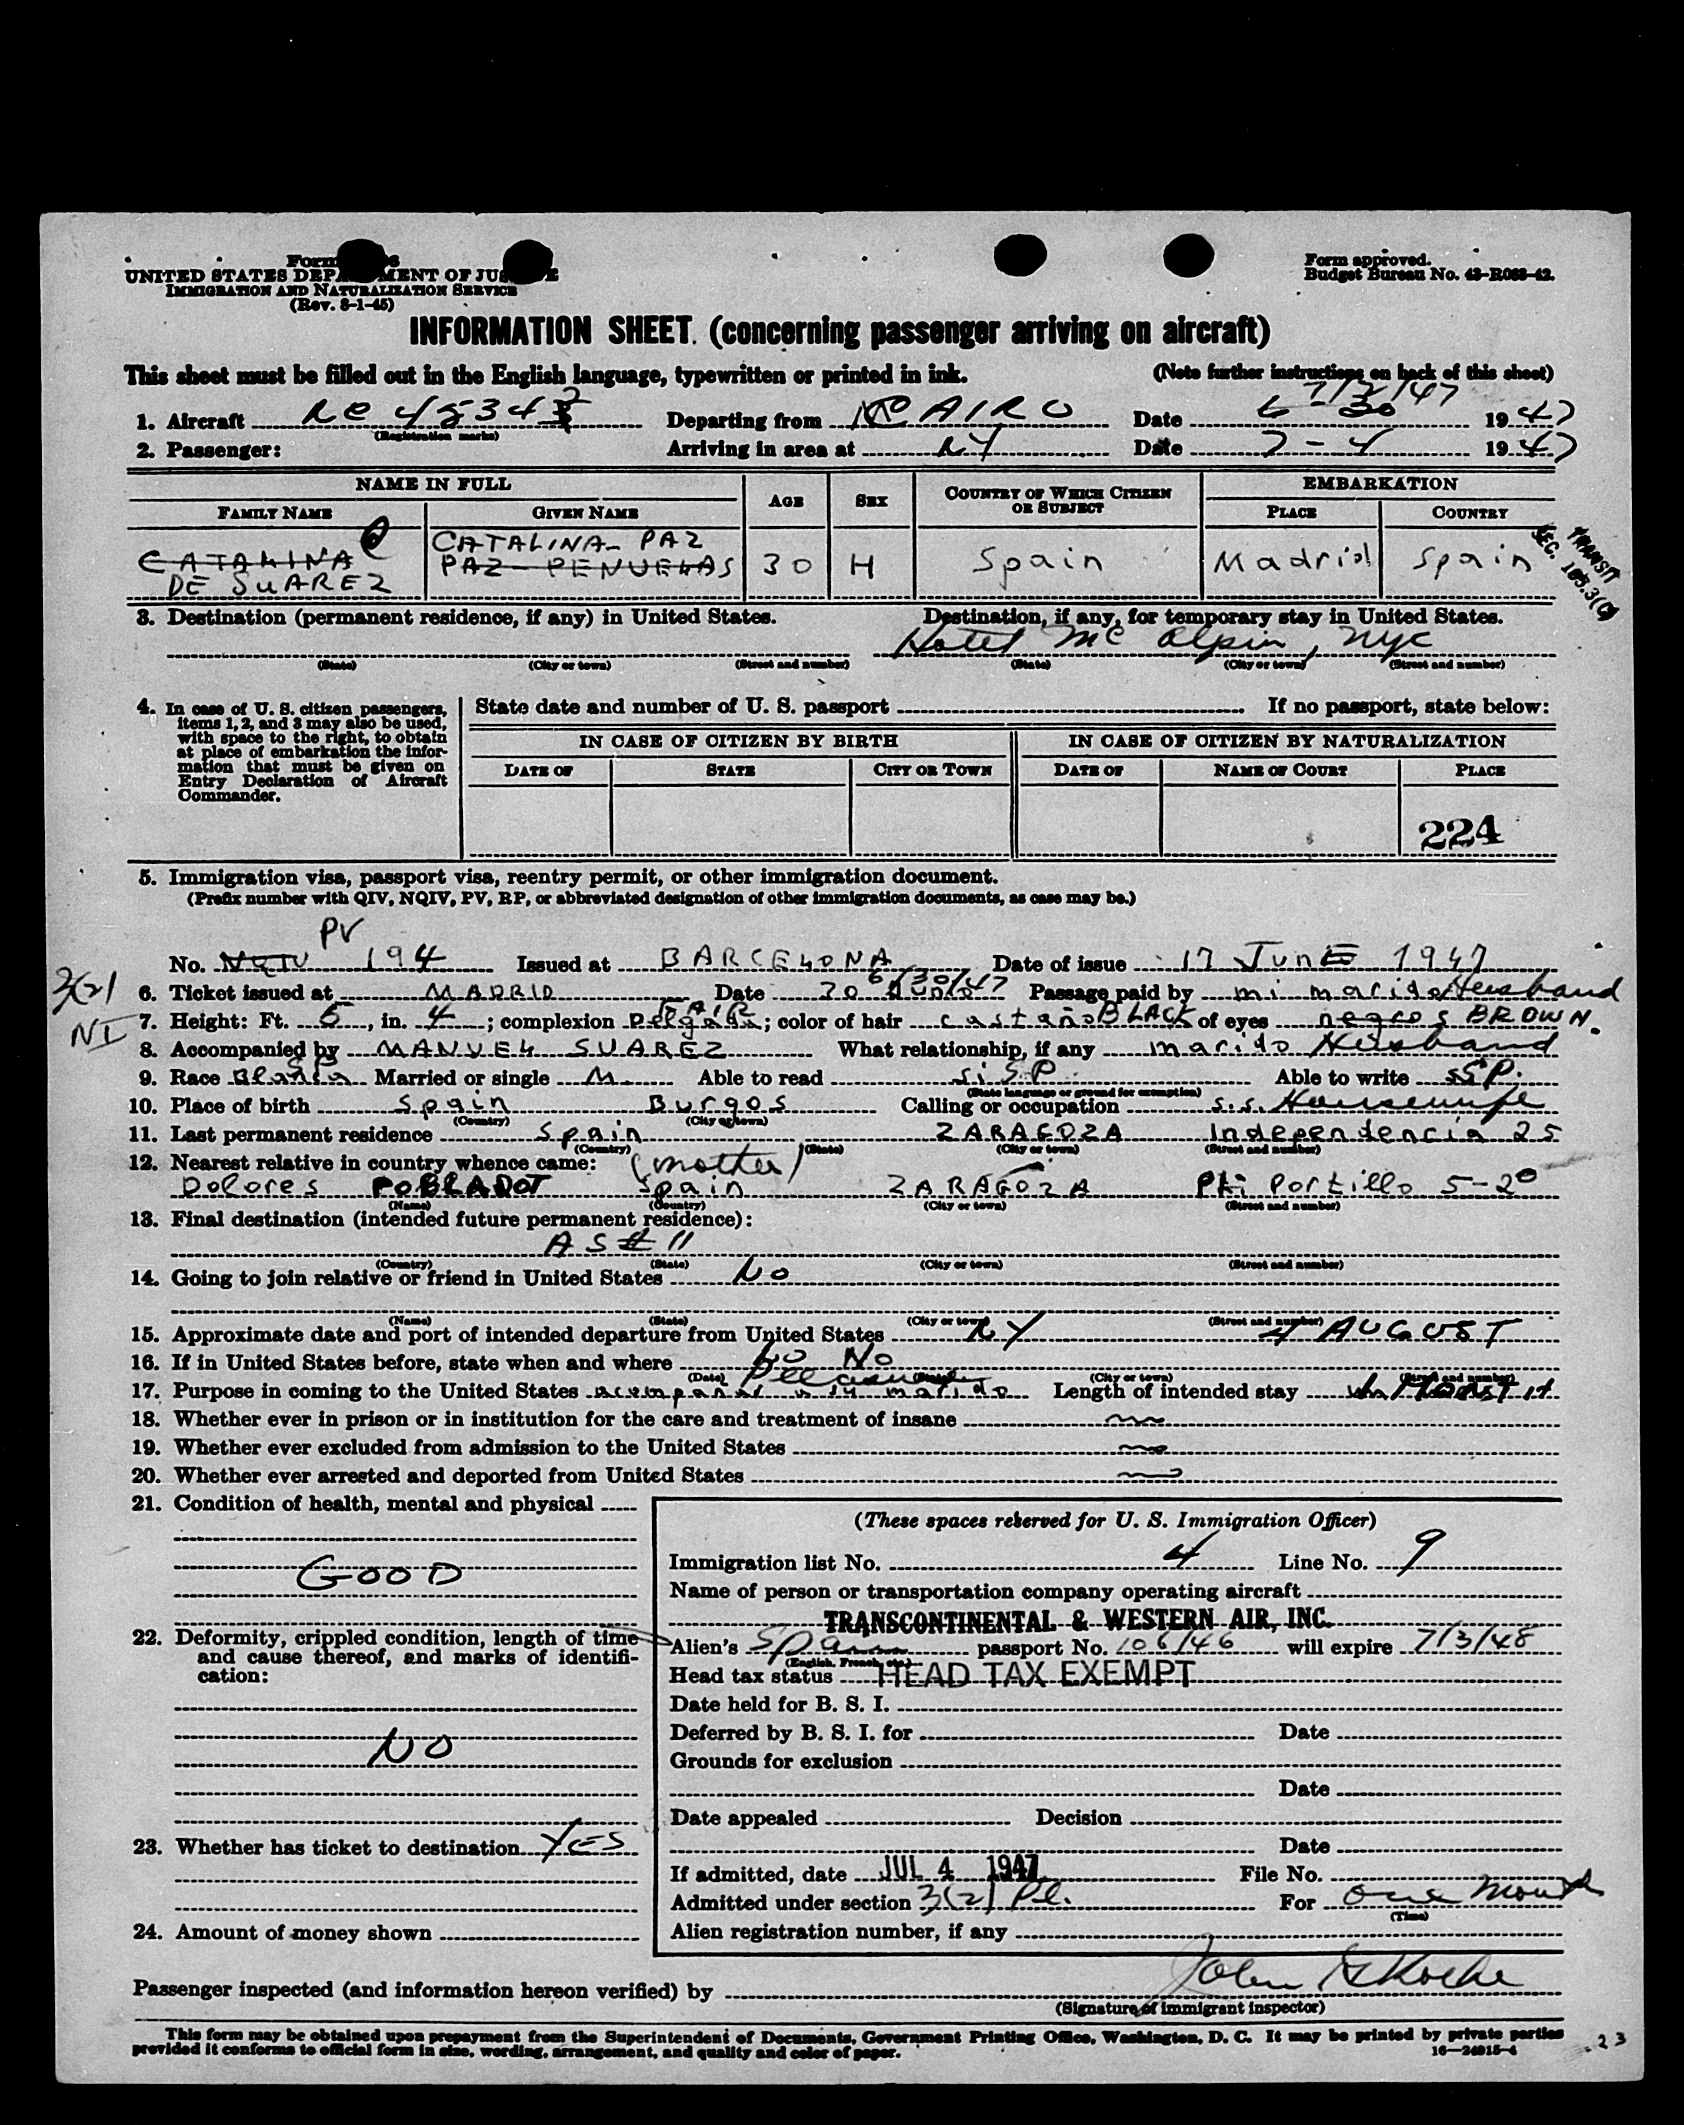 Form
UNITED STATES DEPARTMENT OF JUSTICE
IMMIGRATION AND NATURALIZATION SERVICE
(Rev. 8-1-45)
Form approved.
Budget Bureau No. 43-R068-42.
INFORMATION SHEET (concerning passenger arriving on aircraft)
This sheet must be filled out in the English language, typewritten or printed in ink. (Note further instructions on back of this sheet)
7/2/47
1. Aircraft Departing from CAIRO Date 6-30 1947
(Registration marks)
2. Passenger: Arriving in area at NY Date 7-4 1947
NAME IN FULL AGE SEX COUNTRY OF WHICH CITIZEN OR SUBJECT EMBARKATION
FAMILY NAME GIVEN NAME PLACE COUNTRY
CATALINA CATALINA- PAZ
DE SUAREZ PAZ- PENUELAS 30 H Spain Madrid Spain
TRANSIT
SEC. 165.3(c)
3. Destination (permanent residence, if any) in United States. Destination, if any, for temporary stay in United States.
Hotel McAlpin, NYC
(State) (City or town) (Street and number) (State) (City or town) (Street and number)
4. In case of U. S. citizen passengers, items 1, 2, and 3 may also be used, with space to the right, to obtain at place of embarkation the information that must be given on Entry Declaration of Aircraft Commander.
State date and number of U. S. passport If no passport, state below:
IN CASE OF CITIZEN BY BIRTH IN CASE OF CITIZEN BY NATURALIZATION
DATE OF STATE CITY OR TOWN DATE OF NAME OF COURT PLACE
224
5. Immigration visa, passport visa, reentry permit, or other immigration document.
(Prefix number with QIV, NQIV, PV, RP, or abbreviated designation of other immigration documents, as case may be.)
PV
No. NQIV 194 Issued at BARCELONA Date of issue 17 JUNE 1947
3(2)
NI
6/30/47
6. Ticket issued at MADRID Date 30 Junio Passage paid by mi marido Husband
FAIR
7. Height: Ft. 5, in. 4; complexion Delgada; color of hair castaño BLACK of eyes negros BROWN.
8. Accompanied by MANUEL SUAREZ What relationship, if any marido Husband
9. Race Blanca Married or single M. Able to read si SP. Able to write SP.
(State language or ground for exemption)
10. Place of birth Spain Burgos Calling or occupation s.s. Housewife
(Country) (City or town)
11. Last permanent residence Spain ZARAGOZA Independencia 25
(Country) (State) (City or town) (Street and number)
12. Nearest relative in country whence came: (mother)
Dolores POBLADOT Spain ZARAGOZA Portillo 5-2º
(Name) (Country) (City or town) (Street and number)
13. Final destination (intended future permanent residence):
AS # 11
(Country) (State) (City or town) (Street and number)
14. Going to join relative or friend in United States No
(Name) (State) (City or town) (Street and number)
15. Approximate date and port of intended departure from United States NY 4 AUGUST
16. If in United States before, state when and where No No
(Date) (City or town) (Street and number)
17. Purpose in coming to the United States Pleasure marido Length of intended stay
18. Whether ever in prison or in institution for the care and treatment of insane no
19. Whether ever excluded from admission to the United States no
20. Whether ever arrested and deported from United States no
21. Condition of health, mental and physical
GOOD
22. Deformity, crippled condition, length of time and cause thereof, and marks of identification:
NO
23. Whether has ticket to destination YES
24. Amount of money shown
(These spaces reserved for U. S. Immigration Officer)
Immigration list No. 4 Line No. 9
Name of person or transportation company operating aircraft
TRANSCONTINENTAL & WESTERN AIR, INC.
Alien's Spain passport No. 106/46 will expire 7/3/48
(English, French, etc.)
Head tax status HEAD TAX EXEMPT
Date held for B. S. I.
Deferred by B. S. I. for Date
Grounds for exclusion
Date
Date appealed Decision
Date
If admitted, date JUL 4 1947 File No.
Admitted under section 3(2) Pl. For one month
(Time)
Alien registration number, if any
Passenger inspected (and information hereon verified) by John
(Signature of immigrant inspector)
This form may be obtained upon prepayment from the Superintendent of Documents, Government Printing Office, Washington, D. C. It may be printed by private parties
provided it conforms to official form in size, wording, arrangement, and quality and color of paper. 16—24915-4
23